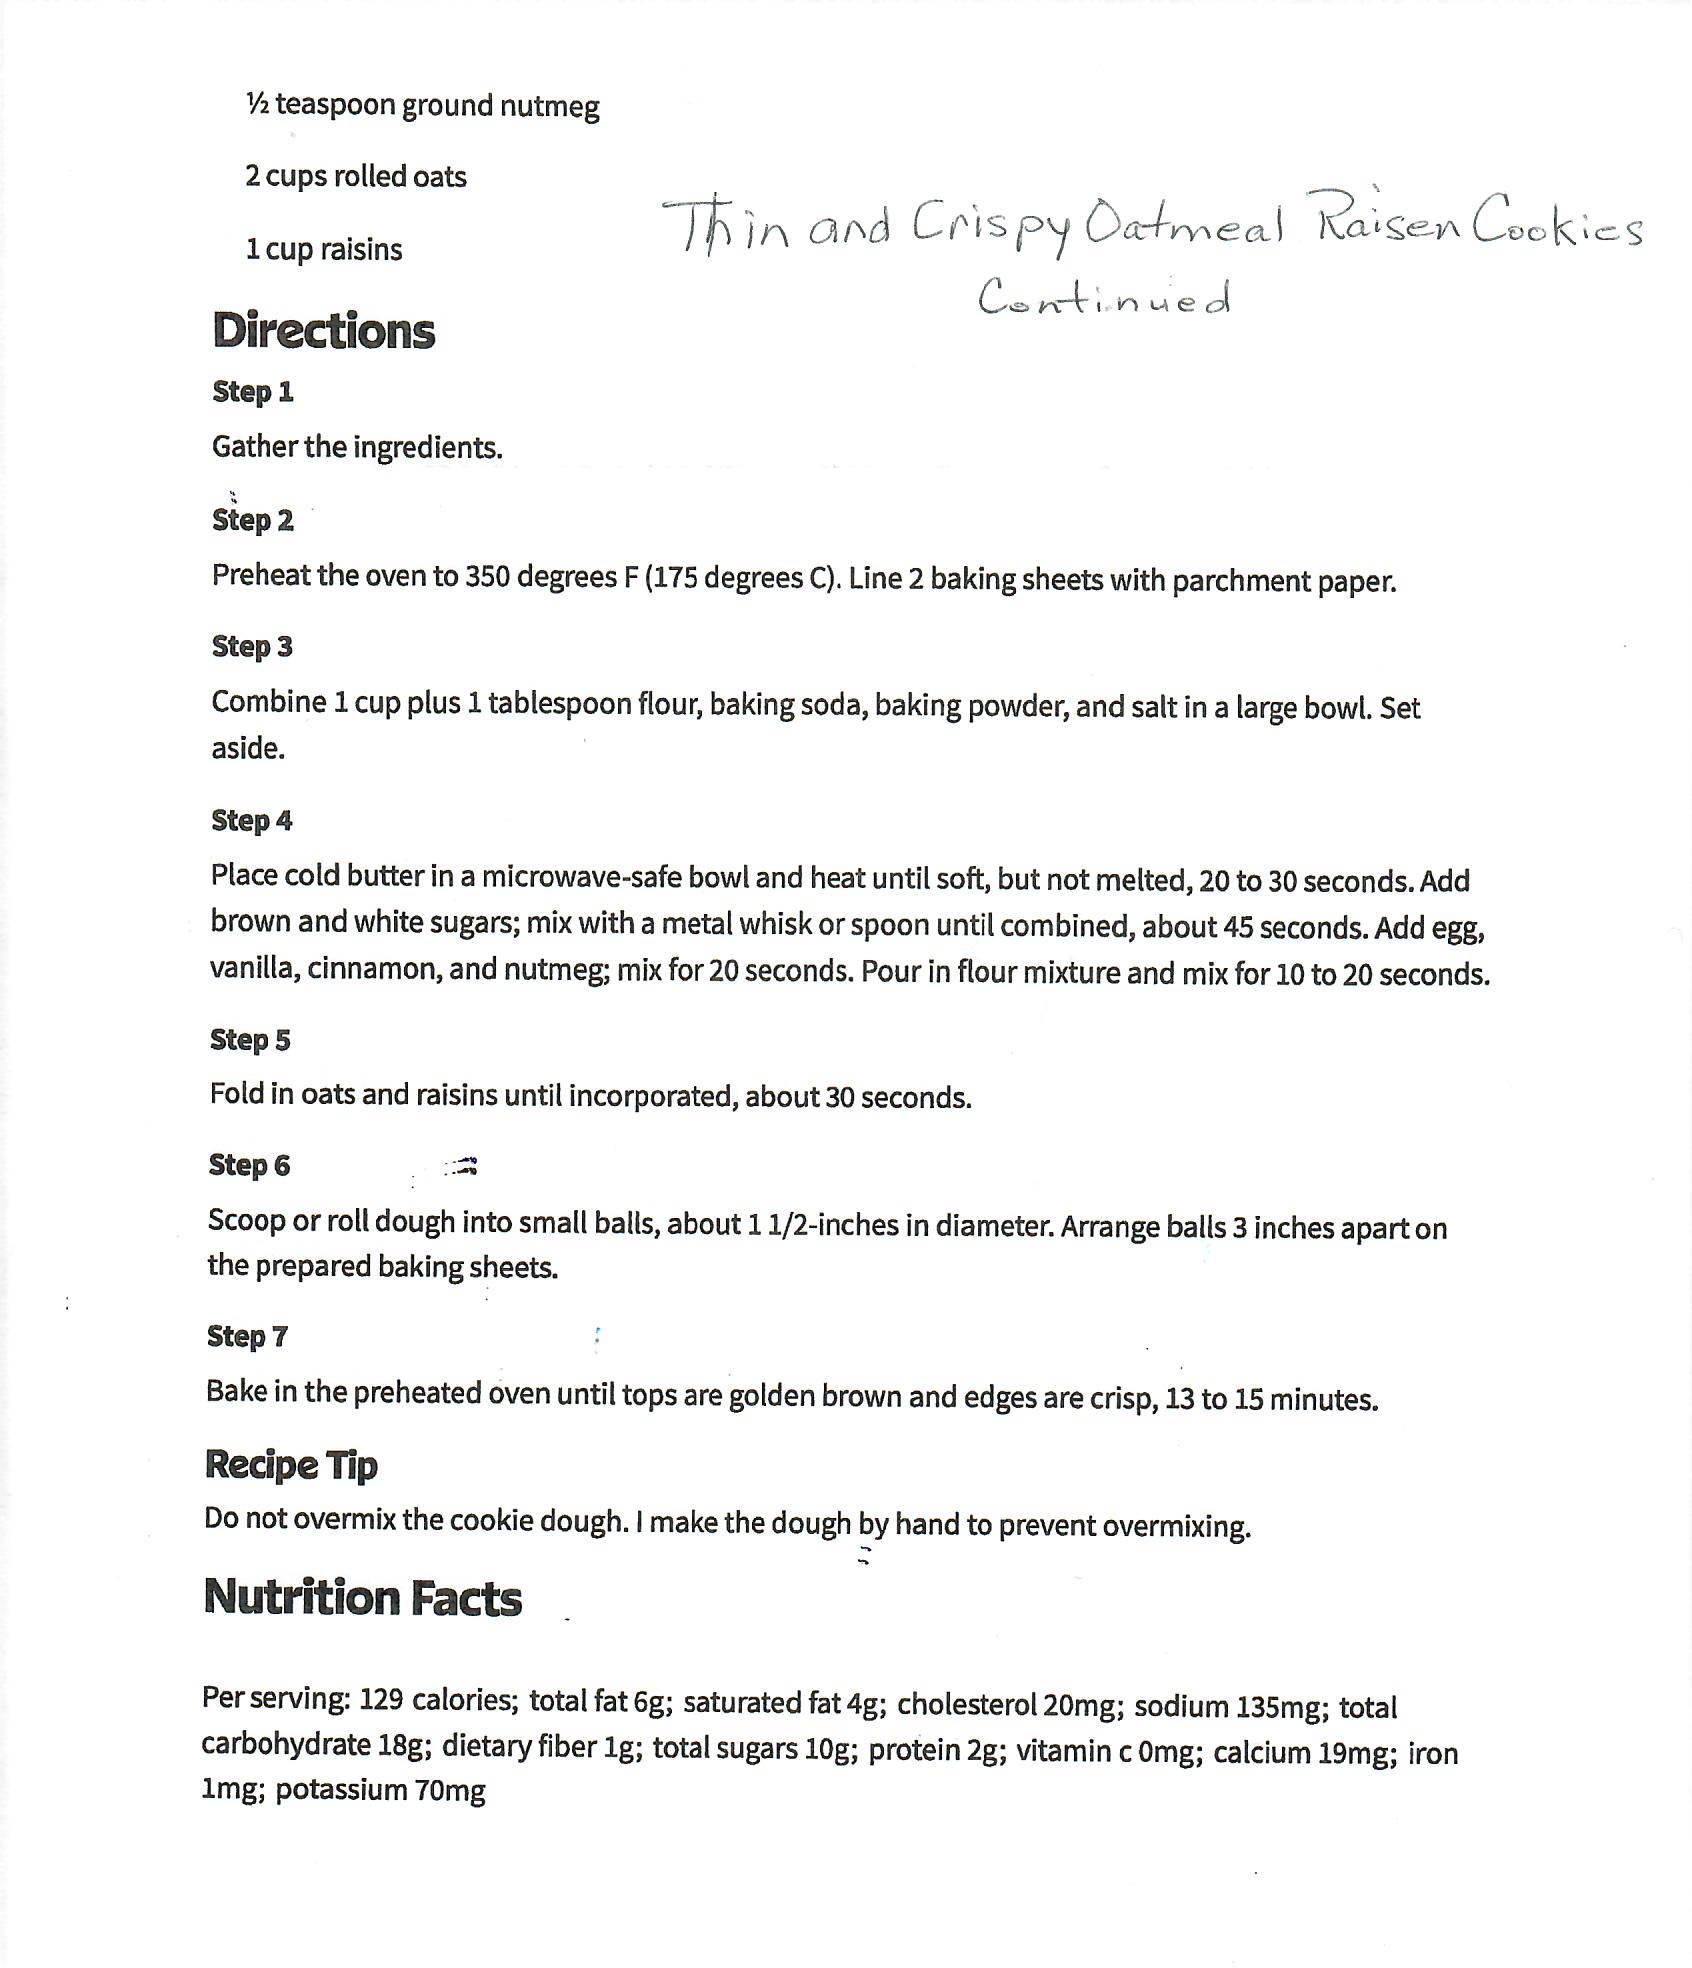 ½ teaspoon ground nutmeg
2 cups rolled oats
Thin and Crispy Oatmeal Raisen Cookies
1 cup raisins
Continued
Directions
Step 1
Gather the ingredients.
Step 2
Preheat the oven to 350 degrees F (175 degrees C). Line 2 baking sheets with parchment paper.
Step 3
Combine 1 cup plus 1 tablespoon flour, baking soda, baking powder, and salt in a large bowl. Set
aside.
Step 4
Place cold butter in a microwave-safe bowl and heat until soft, but not melted, 20 to 30 seconds. Add
brown and white sugars; mix with a metal whisk or spoon until combined, about 45 seconds. Add egg,
vanilla, cinnamon, and nutmeg; mix for 20 seconds. Pour in flour mixture and mix for 10 to 20 seconds.
Step 5
Fold in oats and raisins until incorporated, about 30 seconds.
Step 6
Scoop or roll dough into small balls, about 1 1/2-inches in diameter. Arrange balls 3 inches apart on
the prepared baking sheets.
Step 7
Bake in the preheated oven until tops are golden brown and edges are crisp, 13 to 15 minutes.
Recipe Tip
Do not overmix the cookie dough. I make the dough by hand to prevent overmixing.
Nutrition Facts
Per serving: 129 calories; total fat 6g; saturated fat 4g; cholesterol 20mg; sodium 135mg; total
carbohydrate 18g; dietary fiber 1g; total sugars 10g; protein 2g; vitamin c 0mg; calcium 19mg; iron
1mg; potassium 70mg